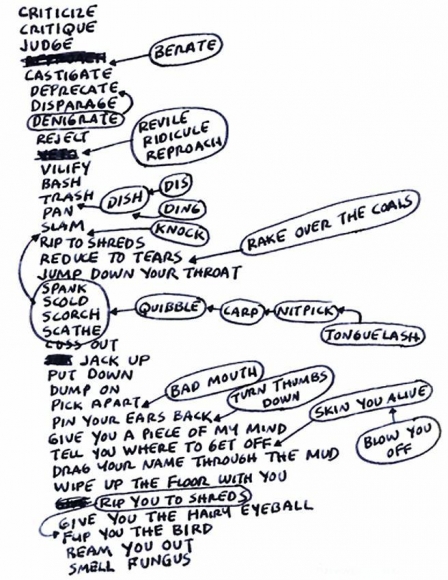 CRITICIZE
CRITIQUE
JUDGE
BERATE
CASTIGATE
DEPRECATE
DISPARAGE
DENIGRATE
REVILE
RIDICULE
REPROACH
REJECT
VILIFY
BASH
TRASH
DISH
DIS
PAN
DING
SLAM
KNOCK
RIP TO SHREDS
RAKE OVER THE COALS
REDUCE TO TEARS
JUMP DOWN YOUR THROAT
SPANK
SCOLD
SCORCH
SCATHE
QUIBBLE
CARP
NITPICK
TONGUELASH
CUSS OUT
JACK UP
PUT DOWN
DUMP ON
BAD MOUTH
PICK APART
TURN THUMBS
DOWN
PIN YOUR EARS BACK
SKIN YOU ALIVE
GIVE YOU A PIECE OF MY MIND
TELL YOU WHERE TO GET OFF
BLOW YOU
OFF
DRAG YOUR NAME THROUGH THE MUD
WIPE UP THE FLOOR WITH YOU
RIP YOU TO SHREDS
GIVE YOU THE HAIRY EYEBALL
FLIP YOU THE BIRD
REAM YOU OUT
SMELL FUNGUS